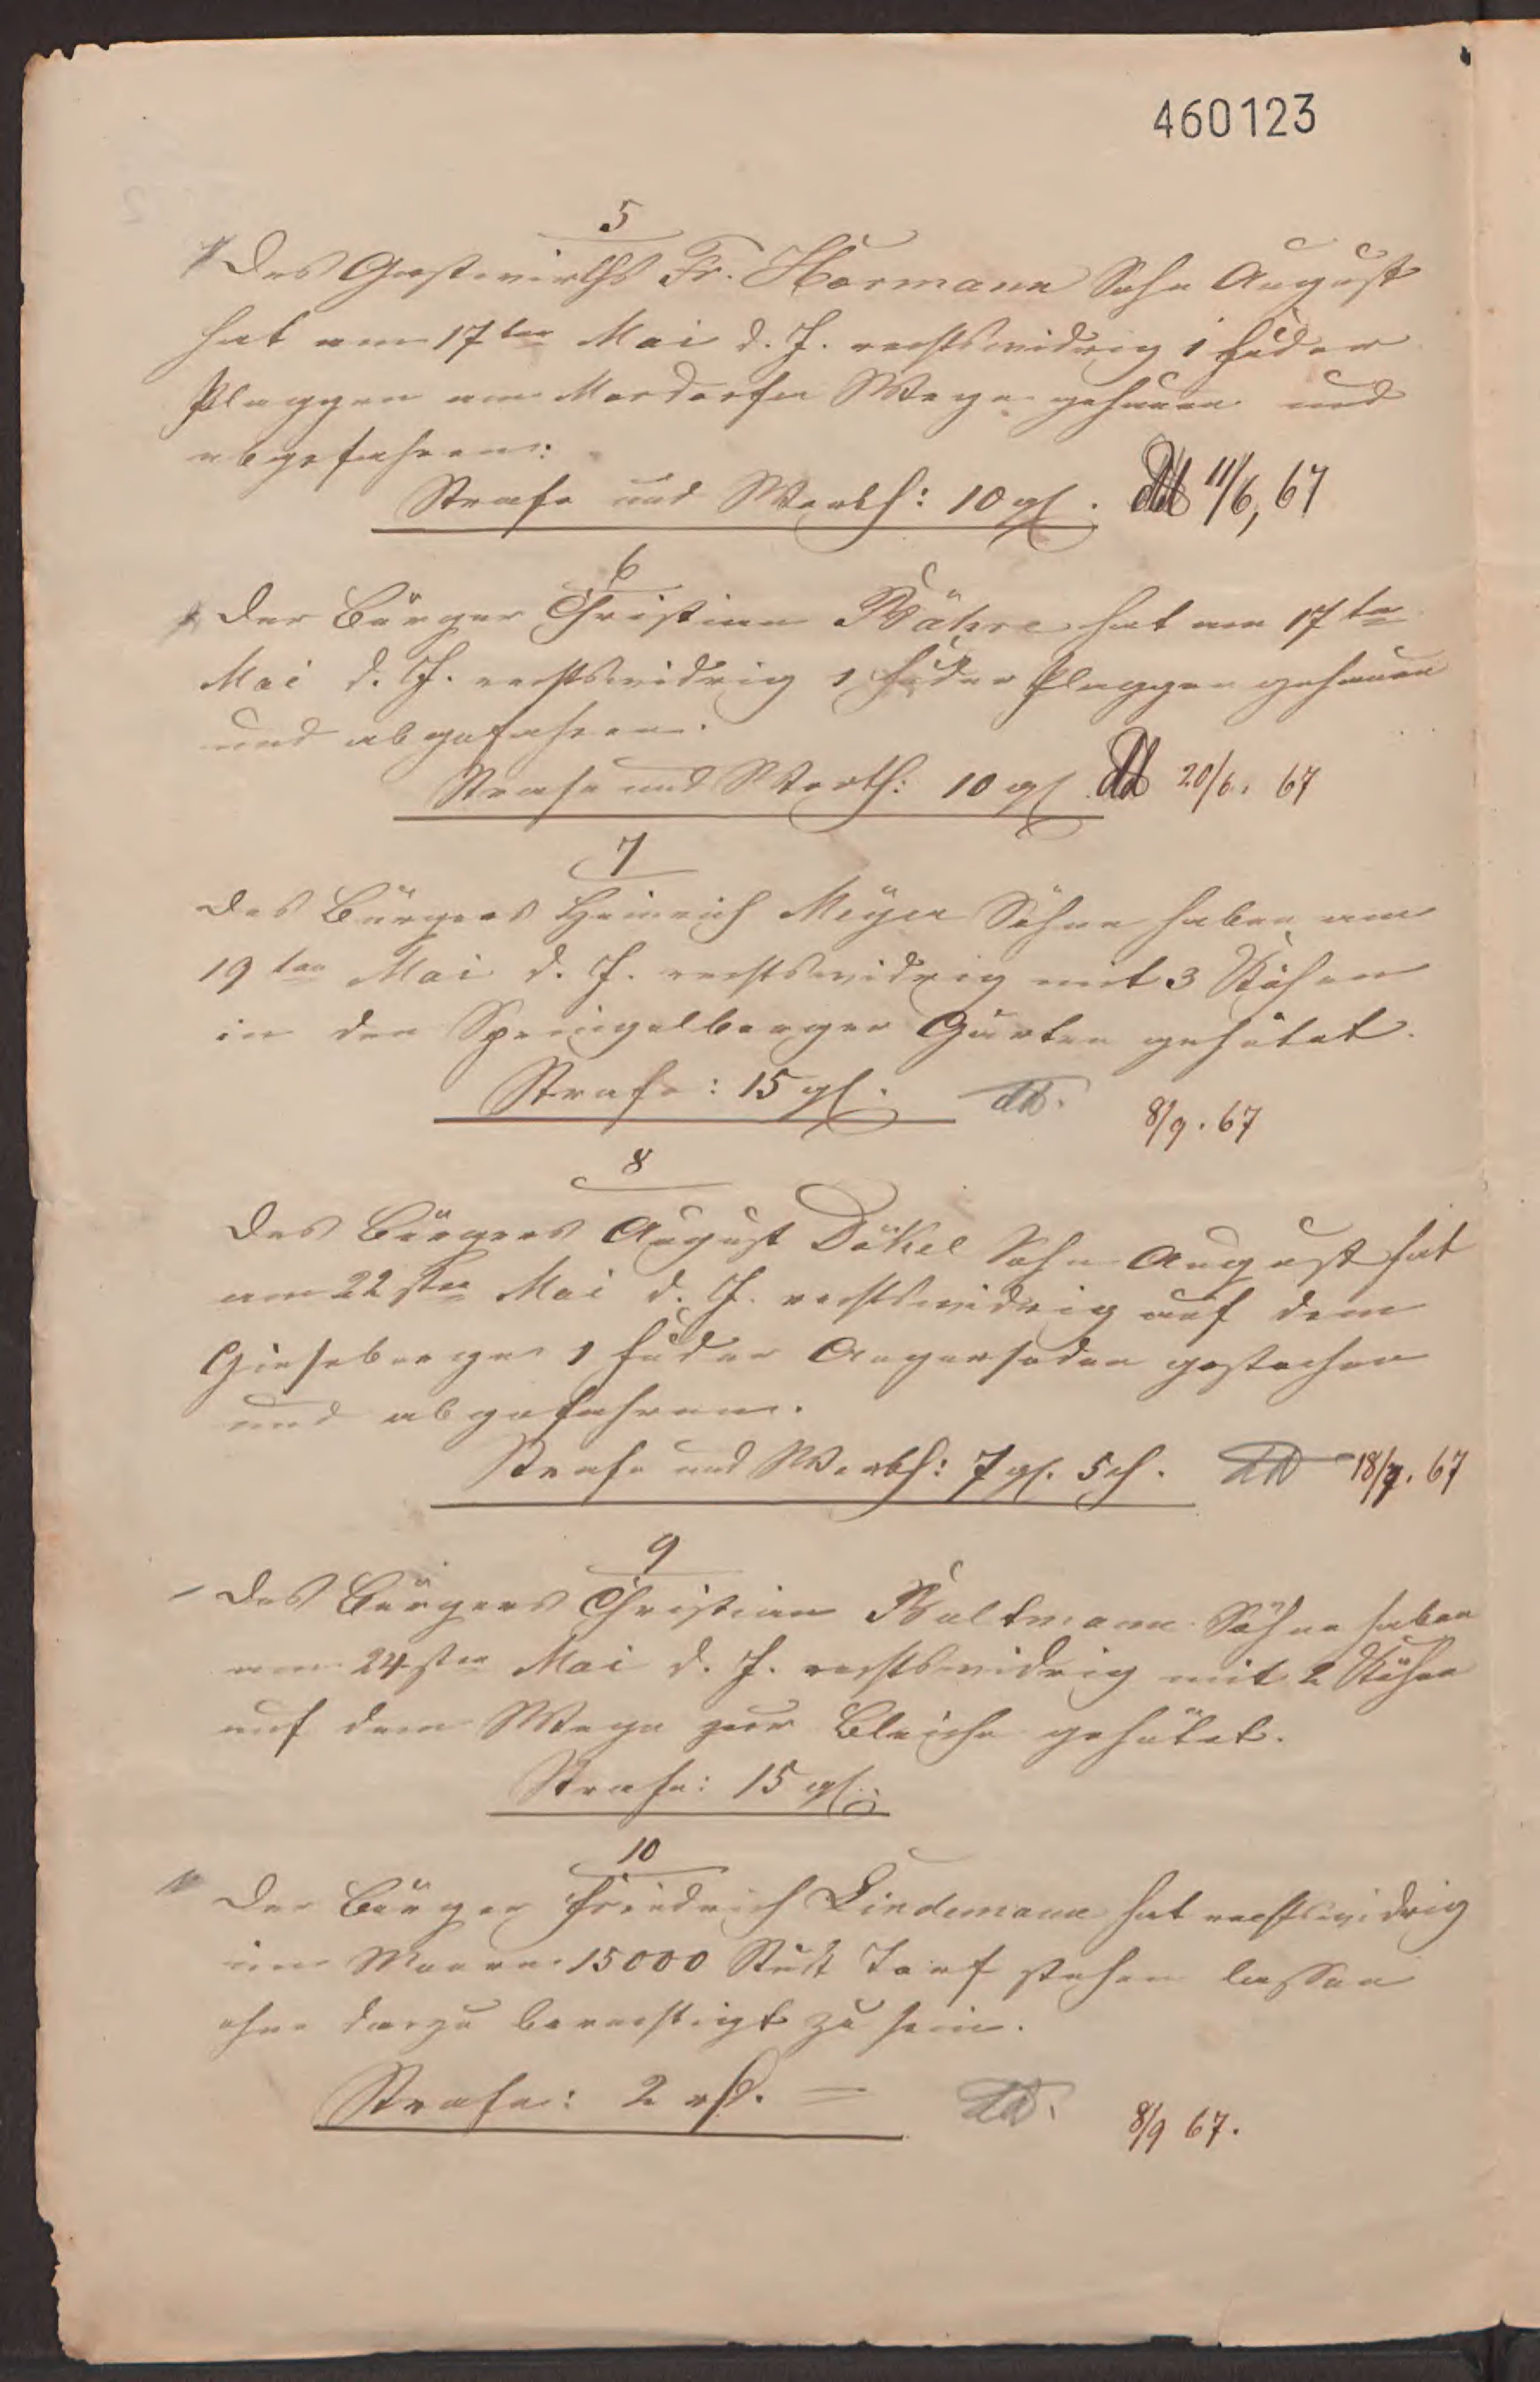 460123
5
Des Gastwirths Fr. Hormann Sohn August
hat am 17ten Mai d. J. rechtswidrig 1 Fuder
Plaggen am Mardorfer Wege gehauen und
abgefahren:
Strafe und Werth: 10 gl. dd 11/6, 67
6
Der Bürger Christian Bähre hat am 17ten
Mai d. J. rechtswidrig 1 Fuder Plaggen gehauen
und abgefahren.
Strafe und Werth: 10 gl dd 20/6. 67
7
Des Bürgers Heinrich Meyer Söhne haben am
19ten Mai d. J. rechtswidrig mit 3 Kühen
in den Springelberger Gärten gehütet.
Strafe: 15 gl. dd. 8/9. 67
8
Des Bürgers August Dökel Sohn August hat
am 22sten Mai d. J. rechtswidrig auf dem
Gieseberge 1 Fuder Angersoden gestochen
und abgefahren.
Strafe und Werth: 7 gl. 5 ch. dd 18/7. 67
9
Des Bürgers Christian Bultmann Söhne haben
am 24sten Mai d. J. rechtswidrig mit 2 Kühen
auf dem Wege zur Bleiche gehütet.
Strafe: 15 gl.
10
Der Bürger Friedrich Lindemann hat rechtswidrig
im Moore 15000 Stück Torf stehen lassen
ohne dazu berechtigt zu sein.
Strafe: 2 rh. = dd. 8/9 67.